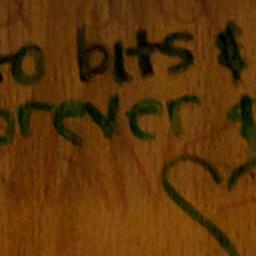 to bits &
orever &